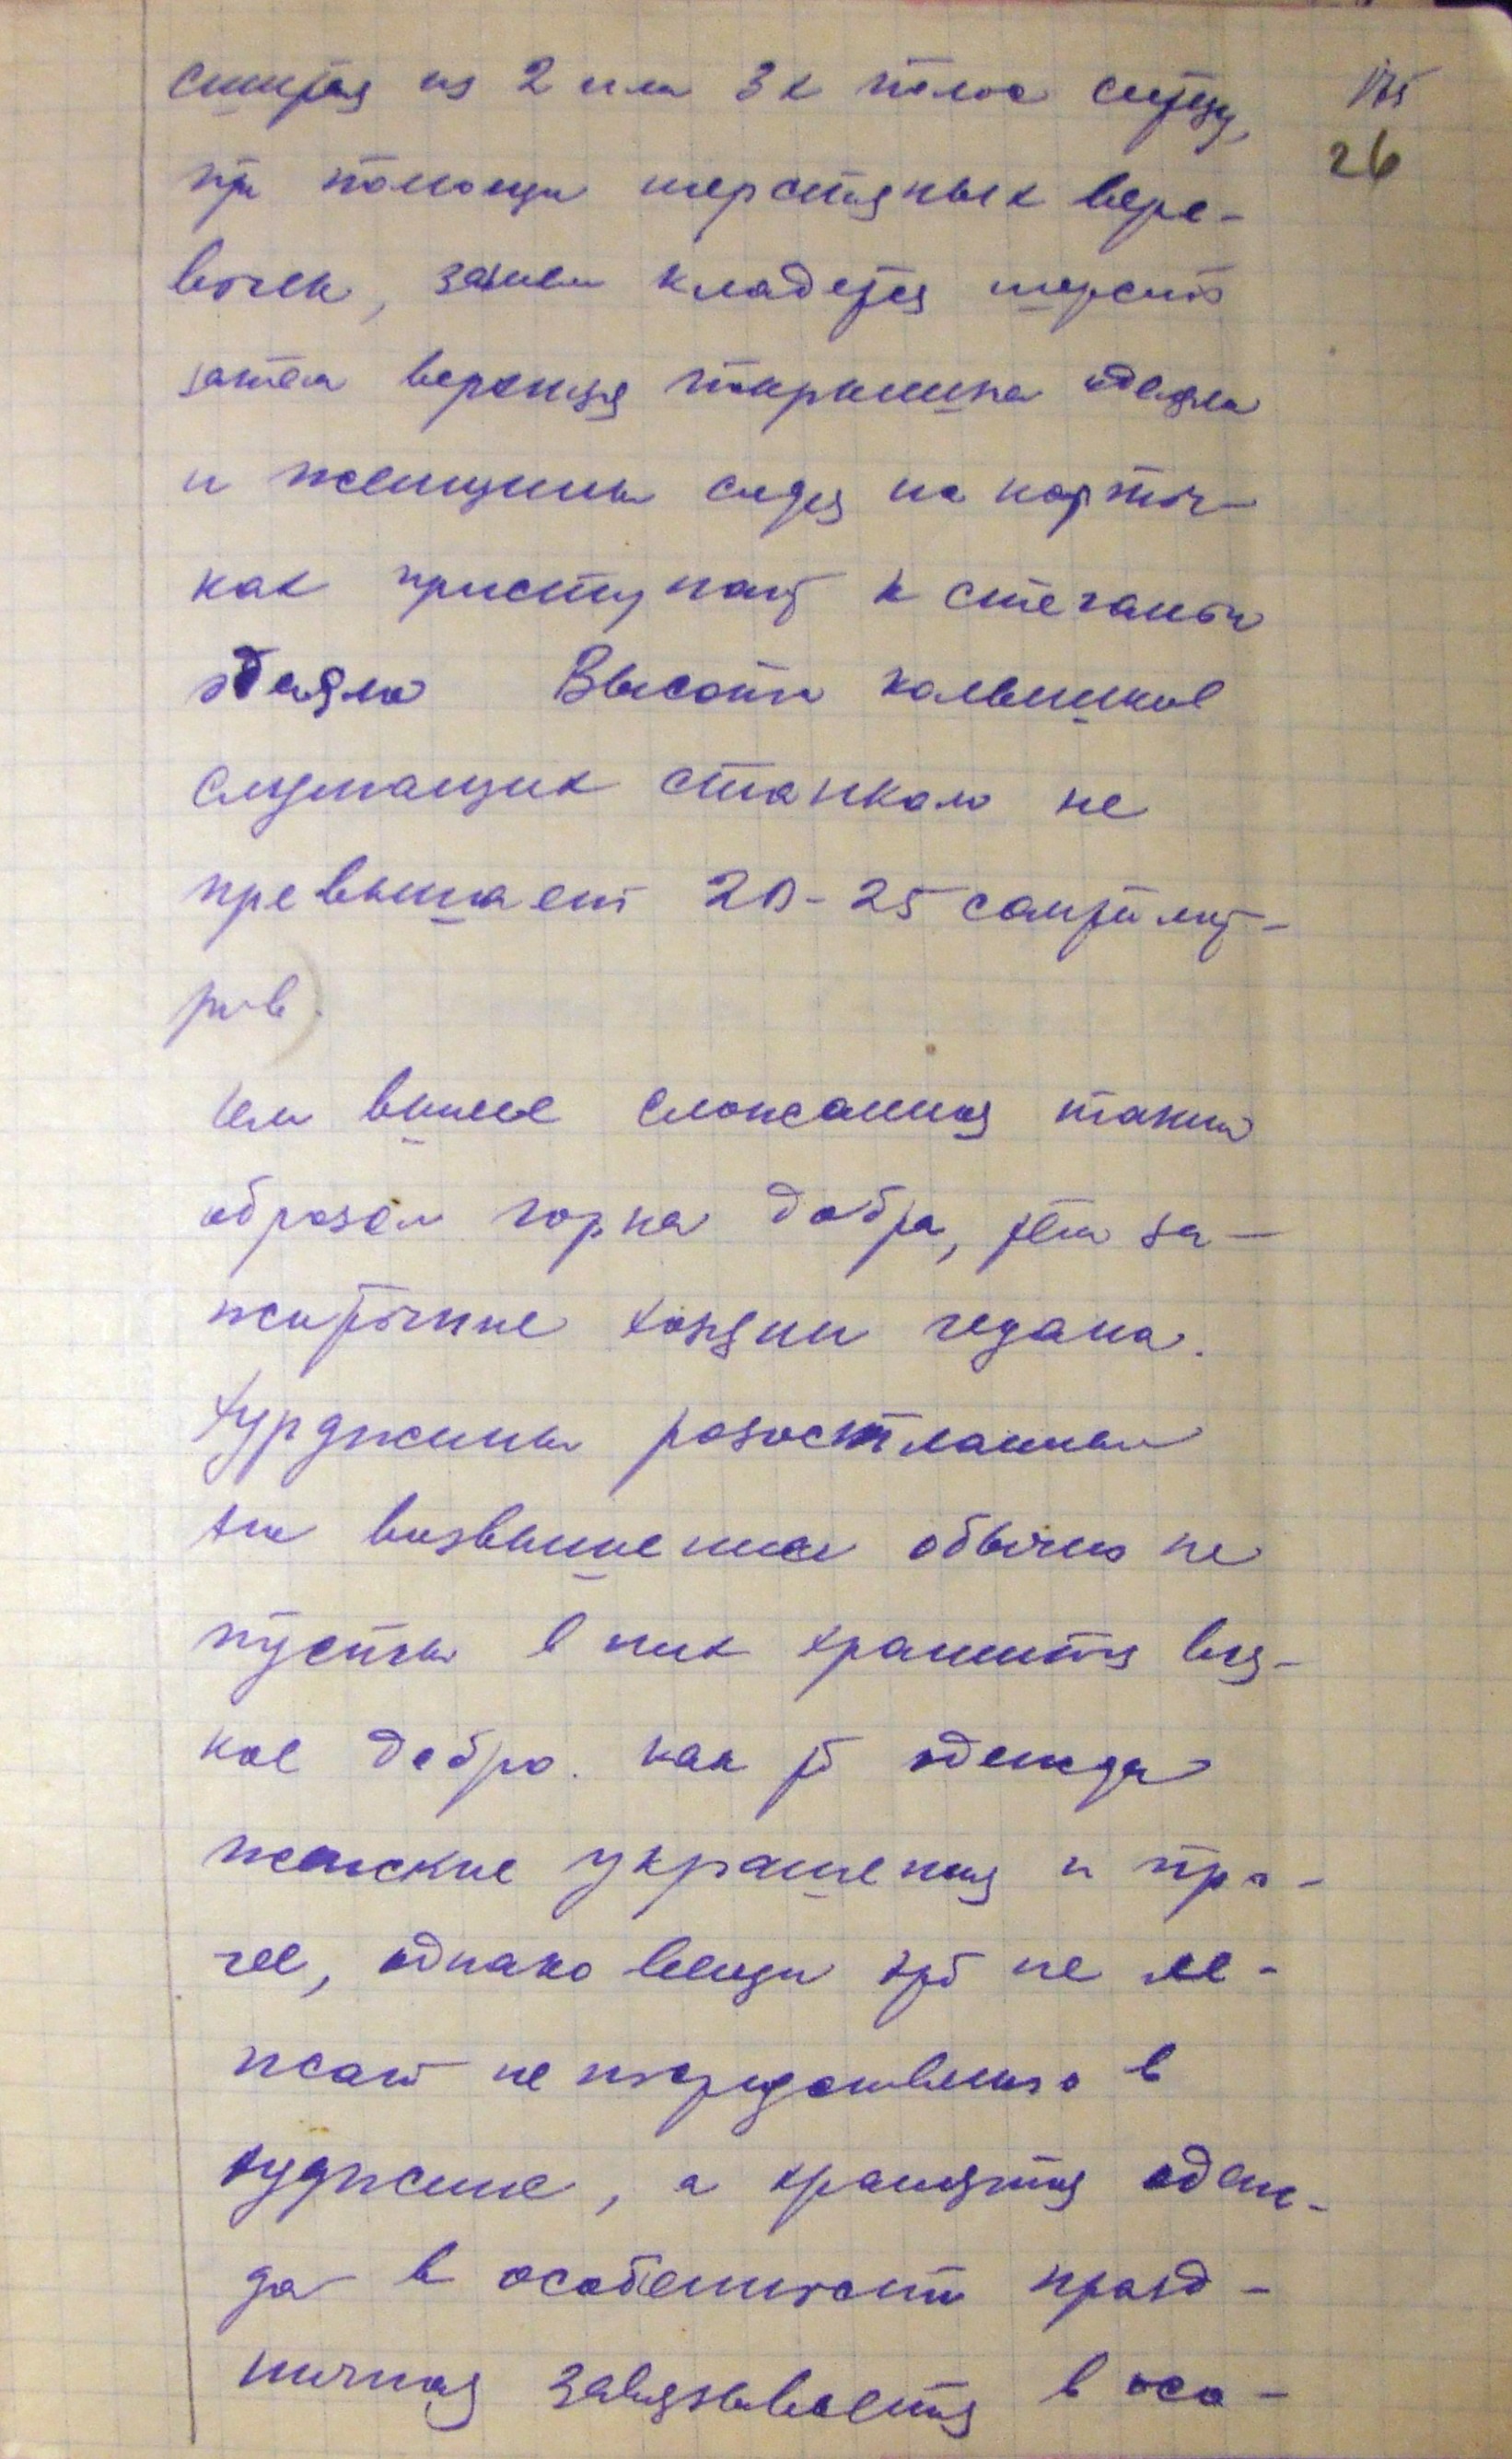 сшитая из 2 или 3х полос ситцу,
175
26
при помощи шерстяных вере-
вочек, кладется шерсть
затем верхняя покрышка одеяла
и женщины сидя на корточ-
ках приступают к стеганью
одеяла Высота колышков
служащих станком не
превышает 20-25 сантимет-
ров.
чем выше сложенная таким
образом горка добра, тем за-
житочнее хозяин чедана.
Хурджины разостланные
на возвышении обычно не
пусты в них хранится вся-
кое добро. как то одежда
женские украшения и про-
чее, однако вещи эти не ле-
жат непосредственно в
худжине, а хранятся одеж-
да в особенности празд-
ничная завязывается в осо-